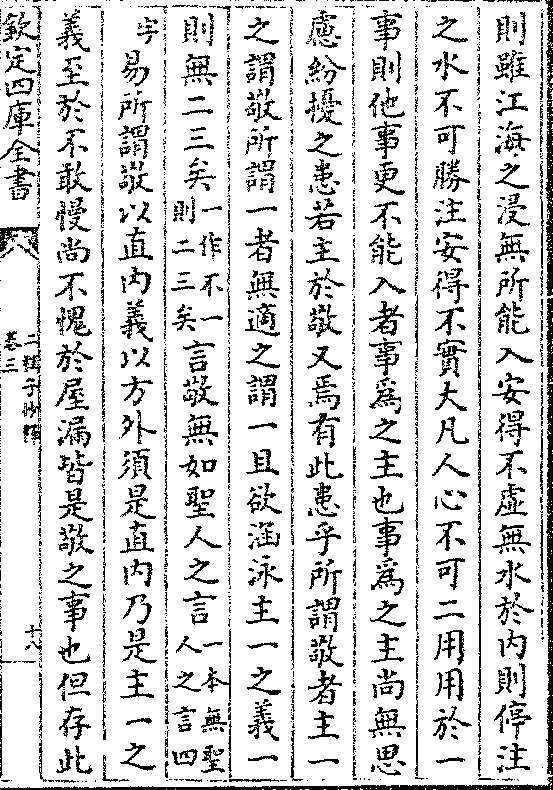 則雖江海之浸無所能入安得不虛無水於内則停注
之水不可勝注安得不實大凡人心不可二用用於一
事則他事更不能入者事爲之主也事爲之主尚無思
慮紛擾之患若主於敬又焉有此患乎所謂敬者主一
之謂敬所謂一者無適之謂一且欲涵泳主一之義一
則無二三矣一作不一則二三矣言敬無如聖人之言一本無聖人之言四
字易所謂敬以直内義以方外須是直内乃是主一之
義至於不敢慢尚不愧於屋漏皆是敬之事也但存此
欽定四庫全書
二程子抄釋
卷三
十八